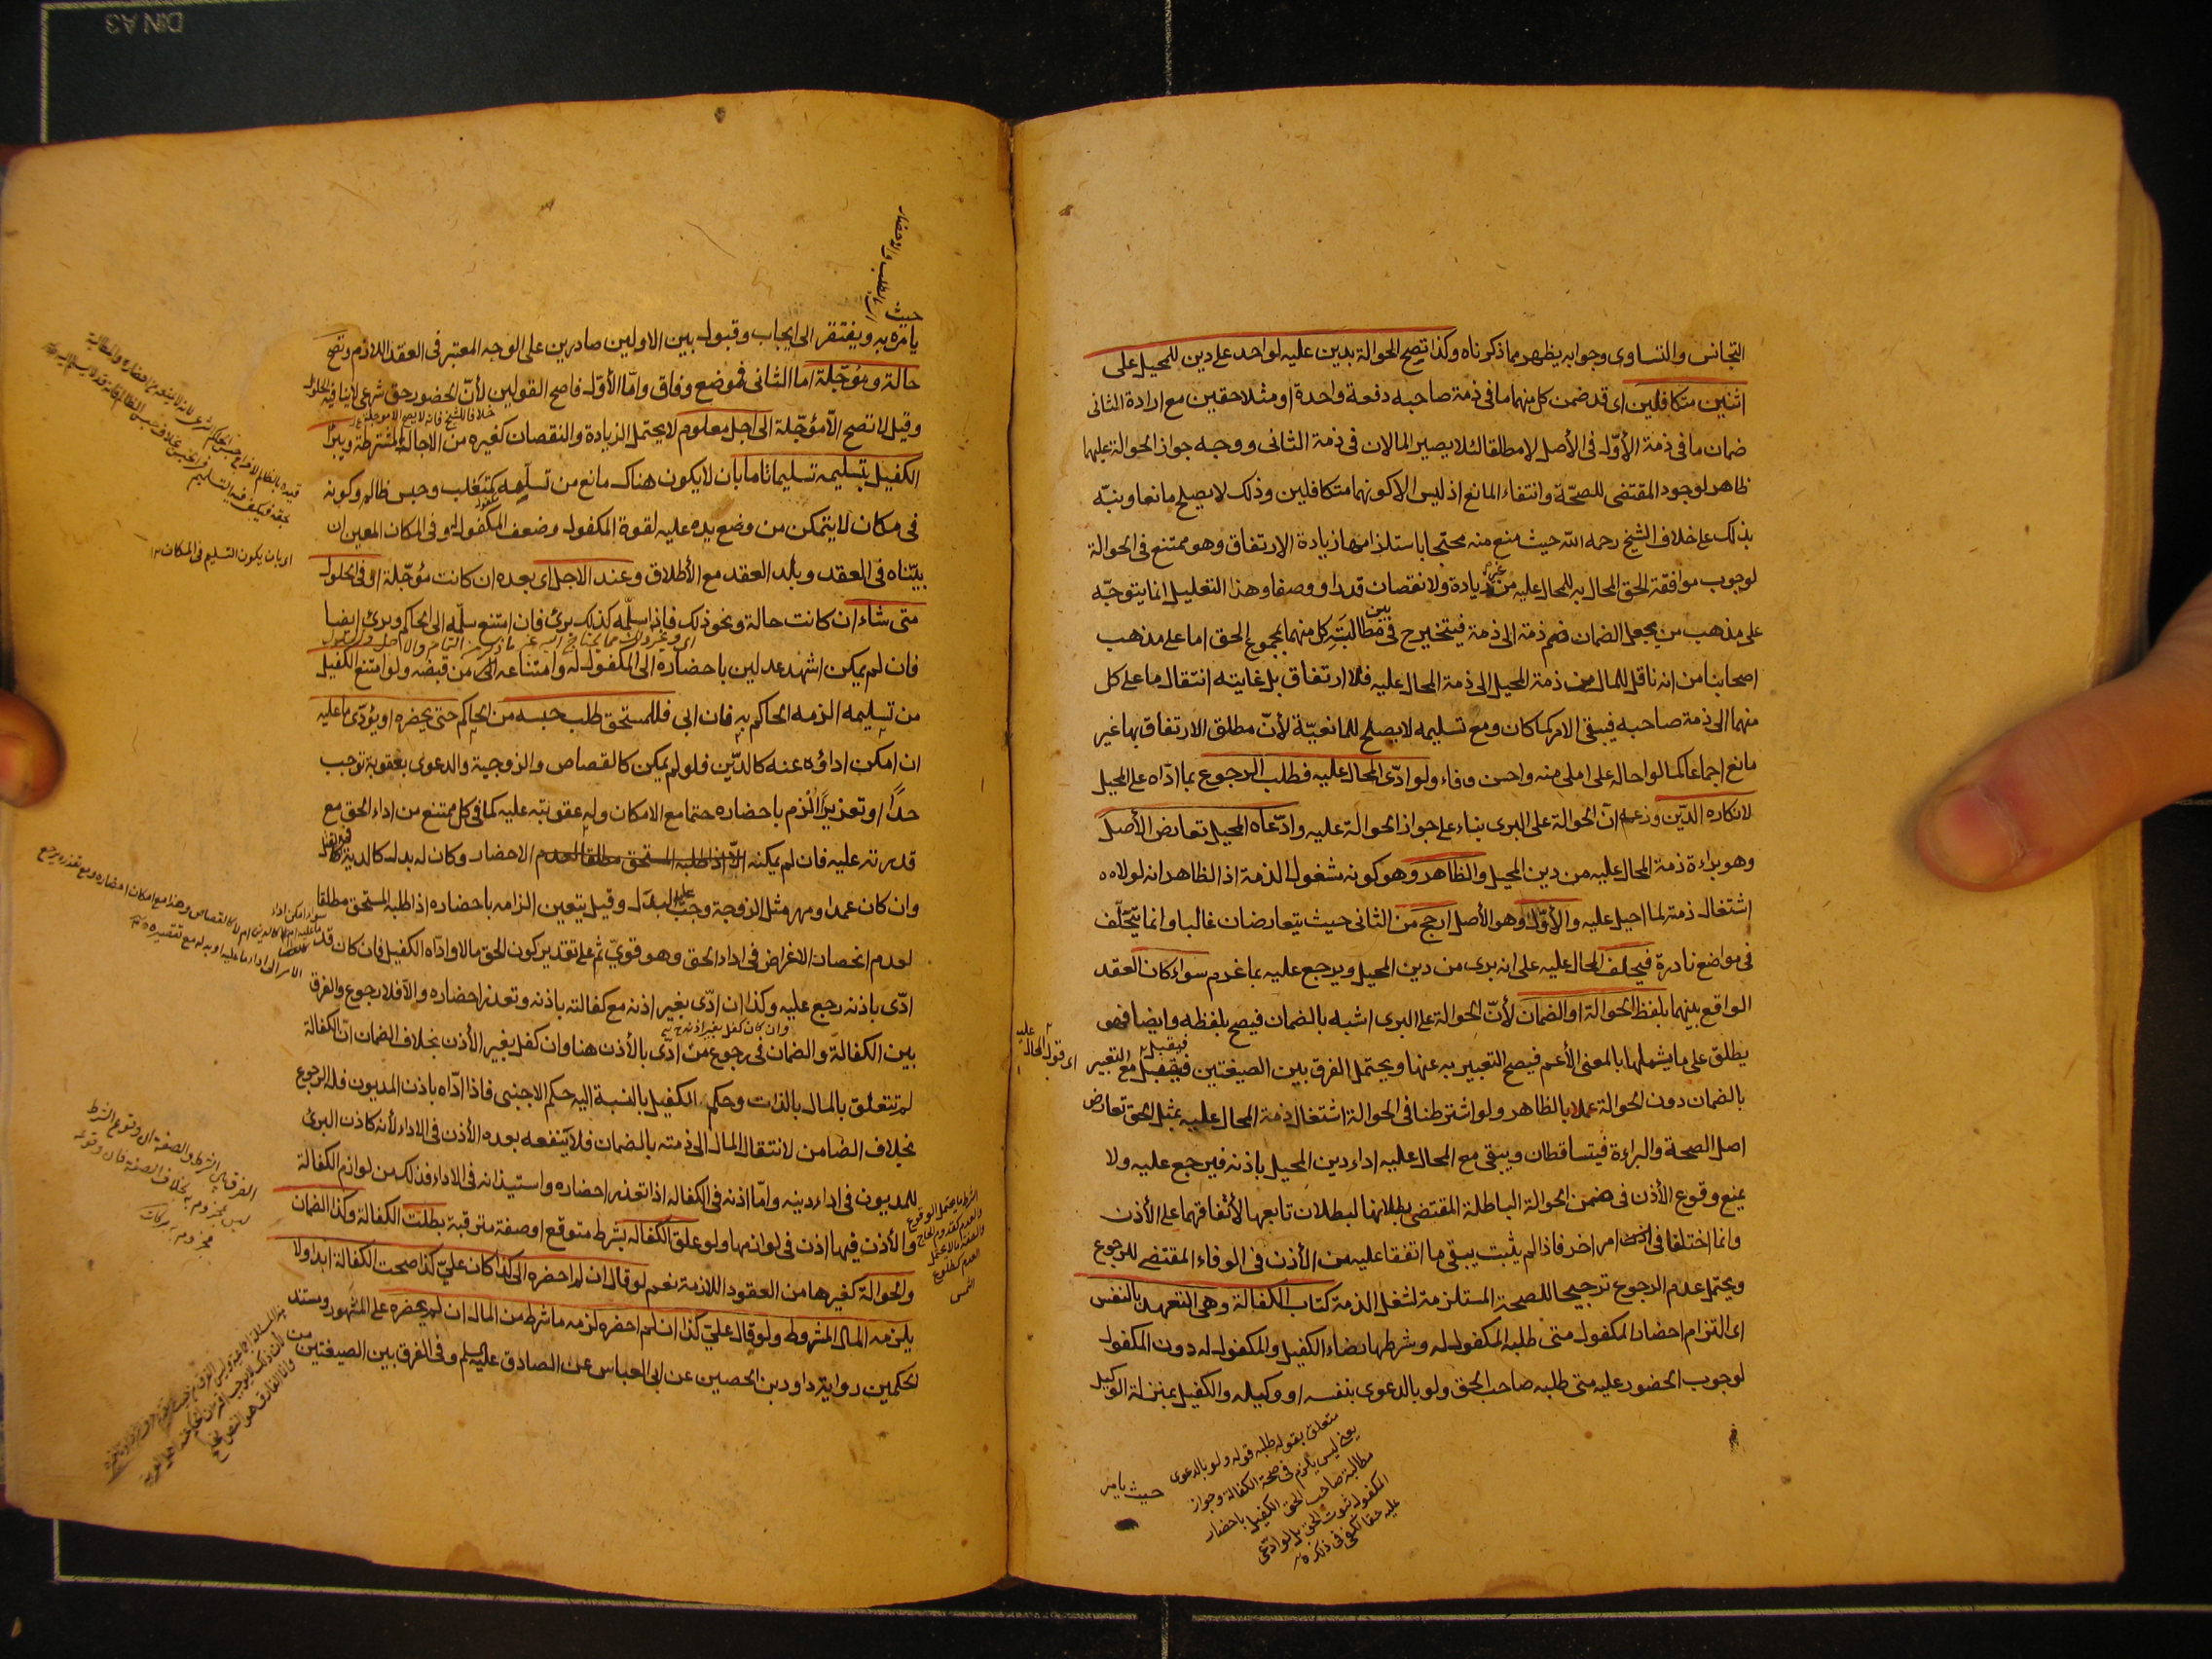 التجانس والتساوى وجوابه يظهر مما ذكرناه وكذا تصح الحوالة بدين عليه لواحد على دين للمحيل على
اثنين متكافلين اى قد ضمن كل منهما ما فى ذمة صاحبه دفعة واحدة او متلاحقين مع ارادة الثانى
ضمان ما فى ذمة الأوّل فى الأصل لا مطلقا لئلا يصير المالان فى ذمة الثانى ووجه جواز الحوالة عليهما
ظاهر لوجود المقتضى للصحّة وانتفاء المانع اذ ليس الا كونهما متكافلين وذلك لا يصلح مانعا ونبّه
بذلك على خلاف الشيخ رحمه الله حيث منع منه محتجا باستلزامها زيادة الارتفاق وهو ممتنع فى الحوالة
لوجوب موافقة الحق المحال به للمحال عليه من غير زيادة ولا نقصان قدرا ووصفا وهذا التعليل انما يتوجّه
على مذهب من يجعل الضمان ضم ذمة الى ذمة فيتخير ح فى مطالبة كل منهما بمجموع الحق اما على مذهب
اصحابنا من انه ناقل للمال من ذمة المحيل الى ذمة المحال عليه فلا ارتفاق بل غايته انتقال ما على كل
منهما الى ذمة صاحبه فيبقى الامر كما كان ومع تسليمه لا يصلح للمانعيّة لأنّ مطلق الارتفاق بها غير
مانع اجماعا كما لو احاله على املى منه واحسن وفاء ولو ادّى المحال عليه فطلب الرجوع بما ادّاه على المحيل
لانكاره الدّين وزعمه انّ الحوالة على البرى بناء على جواز الحوالة عليه وادّعاه المحيل تعارض الأصل
وهو براءة ذمة المحال عليه من دين المحيل والظاهر وهو كونه مشغول الذمة اذ الظاهر انه لولاه
اشتغال ذمته لما احيل عليه والأوّل وهو الأصل ارجح من الثانى حيث يتعارضان غالبا وانما يتخلّف
فى مواضع نادرة فيحلف المحال عليه على انه برى من دين المحيل ويرجع عليه بما غرم سواء كان العقد
الواقع بينهما بلفظ الحوالة او الضمان لأنّ الحوالة على البرى اشبه بالضمان فيصح بلفظه وايضا فهو
يطلق على ما يشملها بالمعنى الأعم فيصح التعبير به عنها ويحتمل الفرق بين الصيغتين فيقبل مع التعبير
بالضمان دون الحوالة عملا بالظاهر ولو اشترطنا فى الحوالة اشتغال ذمة المحال عليه بمثل الحق تعارض
اصل الصحة والبراءة فيتساقطان ويبقى مع المحال عليه اداء دين المحيل باذنه فيرجع عليه ولا
يمنع وقوع الأذن فى ضمن الحوالة الباطلة المقتضى بطلانها لبطلان تابعها لأتفاقهما على الأذن
وانما اختلفا فى امر اخر فاذا لم يثبت يبقى ما اتفقا عليه من الأذن فى الوفاء المقتضى للرجوع
ويحتمل عدم الرجوع ترجيحا للصحة المستلزمة لشغل الذمة كتاب الكفالة وهى التعهد بالنفس
اى التزام احضار المكفول متى طلبه المكفول له وشرطها رضاء الكفيل والمكفول له دون المكفول
لوجوب الحضور عليه متى طلبه صاحب الحق ولو بالدعوى بنفسه او وكيله والكفيل بمنزلة الوكيل
متعلق بقوله طلبه قوله ولو بالدعوى
يعنى ليس يلزم فى صحة الكفالة وجواز
مطالبة صاحب الحق الكفيل باحضار
المكفول ثبوت الحق بل لو ادّعى
عليه حقا كفى فى ذلك
حيث يامر
اى قول المحال عليه
حيث
يامره به ويفتقر الى ايجاب وقبول بين الاولين صادرين على الوجه المعتبر فى العقد اللازم وتصح
حالة ومؤجّلة اما الثانى فموضع وفاق وامّا الأوّل فاصح القولين لأنّ الحضور حق شرعى لا ينافيه الحلول
خلافا للشيخ فانه لا يصح الا مؤجلة
وقيل لا تصح الّا مؤجّلة الى اجل معلوم لا يحتمل الزيادة والنقصان كغيره من الاجال المشترطة ويبرأ
الكفيل بتسليمه تسليما تاما بان لا يكون هناك مانع من تسلّمه كمتغلب وحبس ظالم وكونه
فى مكان لا يتمكن من وضع يده عليه لقوة المكفول وضعف المكفول له وفى المكان المعين ان
بيّناه فى العقد وبلد العقد مع الأطلاق وعند الاجل اى بعده ان كانت مؤجّلة او فى الحلول
متى شاء ان كانت حالة ونحو ذلك فاذا سلّمه كذلك برئ فان امتنع سلّمه الى الحاكم وبرئ ايضا
فان لم يمكن اشهد عدلين باحضاره الى المكفول له وامتناعه من قبضه ولو امتنع الكفيل
من تسليمه الزمه الحاكم به فان ابى فللمستحق طلب حبسه من الحاكم حتى يحضره او يؤدّى ما عليه
ان امكن اداؤه عنه كالدّين فلو لم يمكن كالقصاص والزوجية والدعوى بعقوبة توجب
حدّا او تعزيرًا اُلزم باحضاره حتما مع الامكان وله عقوبته عليه كما فى كل ممتنع من اداء الحق مع
قدرته عليه فان لم يمكنه الاحضار وكان له بدل كالدية
وان كان عمدا ومهر مثل الزوجة وجب عليه البدل وقيل يتعين الزامه باحضاره اذا طلبه المستحق مطلقا
لعدم انحصار الاغراض فى اداء الحق وهو قوىّ ثم على تقدير كون الحق مالا واداه الكفيل فان كان قد
ادّى باذنه رجع عليه وكذا ان ادّى بغير اذنه مع كفالته باذنه وتعذر احضاره والّا فلا رجوع والفرق
بين الكفالة والضمان فى رجوع من ادّى بالأذن هنا وان كفل بغير الأذن بخلاف الضمان ان الكفالة
لم تتعلق بالمال بالذات وحكم الكفيل بالنسبة اليه حكم الاجنبى فاذا ادّاه باذن المديون فله الرجوع
بخلاف الضامن لانتقال المال الى ذمته بالضمان فلا ينفعه بعده الأذن فى الاداء لأنه كاذن البرئ
للمديون فى اداء دينه وامّا اذنه فى الكفالة اذا تعذر احضاره واستيذانه فى الاداء فذلك من لوازم الكفالة
والأذن فيها اذن فى لوازمها ولو علق الكفالة بشرط متوقع او صفة مترقبة بطلت الكفالة وكذا الضمان
والحوالة كغيرها من العقود اللازمة نعم لو قال ان لم احضره الى كذا كان علىّ كذا صحت الكفالة ابدا ولا
يلزمه المال المشروط ولو قال علىّ كذا ان لم احضره لزمه ما شرط من المال ان لم يحضره على المشهور ومستند
الحكمين رواية داود بن الحصين عن ابى العباس عن الصادق عليه السلم وفى الفرق بين الصيغتين من
اى بان يكون التسليم فى المكان
الفرق بين الشرط والصفة ان وقوع الشرط
ليس بمجزوم به بخلاف الصفة فان وقوعه
مجزوم به